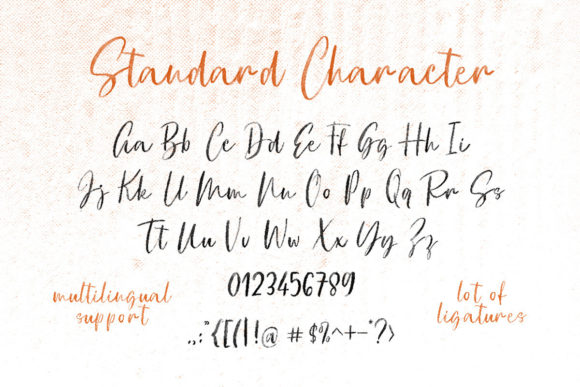 Standard Character
Aa Bb Cc Dd Ee Ff Gg Hh Ii
Jj Kk Ll Mm Nn Oo Pp Qq Rr Ss
Tt Uu Vv Ww Xx Yy Zz
0123456789
multilingual
support
lot of
ligatures
.,:"{[(|!@ # $%^+–*?>